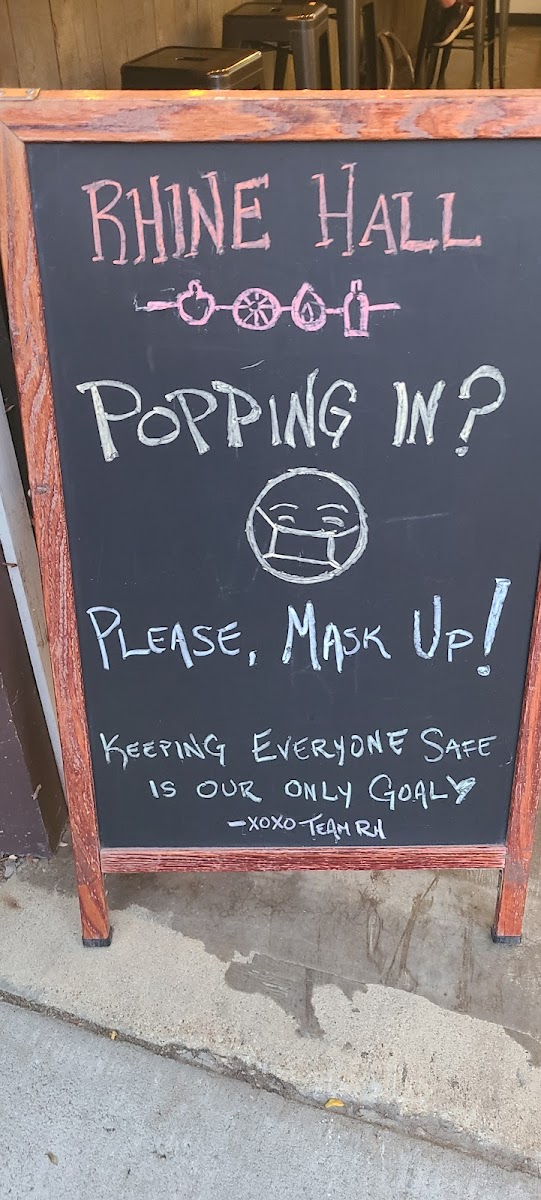 RHINE HALL
POPPING IN?
PLEASE, MASK UP!
KEEPING EVERYONE SAFE
IS OUR ONLY GOAL
-XOXO TEAM RH